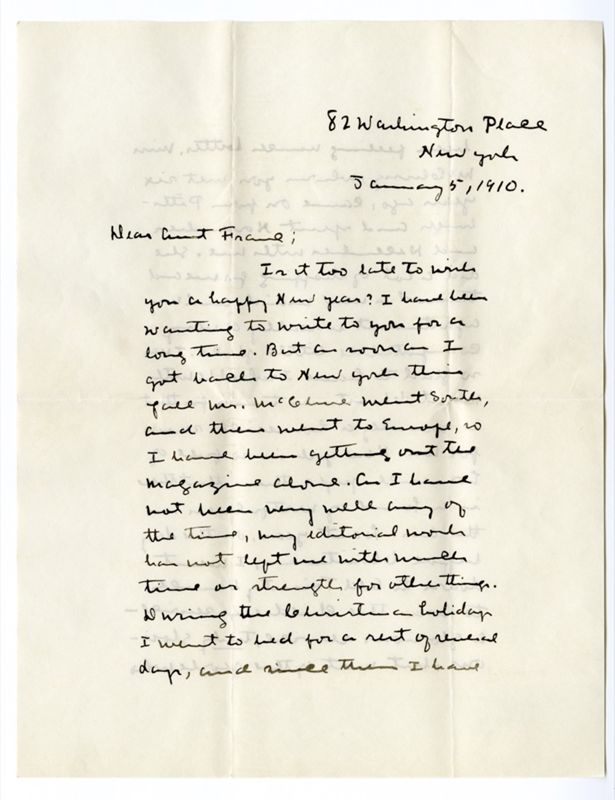 82 Washington Place
New York
January 5, 1910.
Dear Aunt Franc;
Is it too late to wish
you a happy New Year? I have been
wanting to write to you for a
long time. But as soon as I
got back to New York this
fall Mr. McClure went South,
and then went to Europe, so
I have been getting out the
magazine alone. As I have
not been very well any of
the time, my editorial work
has not left me with much
time or strength for other things.
During the Christmas holidays
I went to bed for a rest of several
days, and since then I have